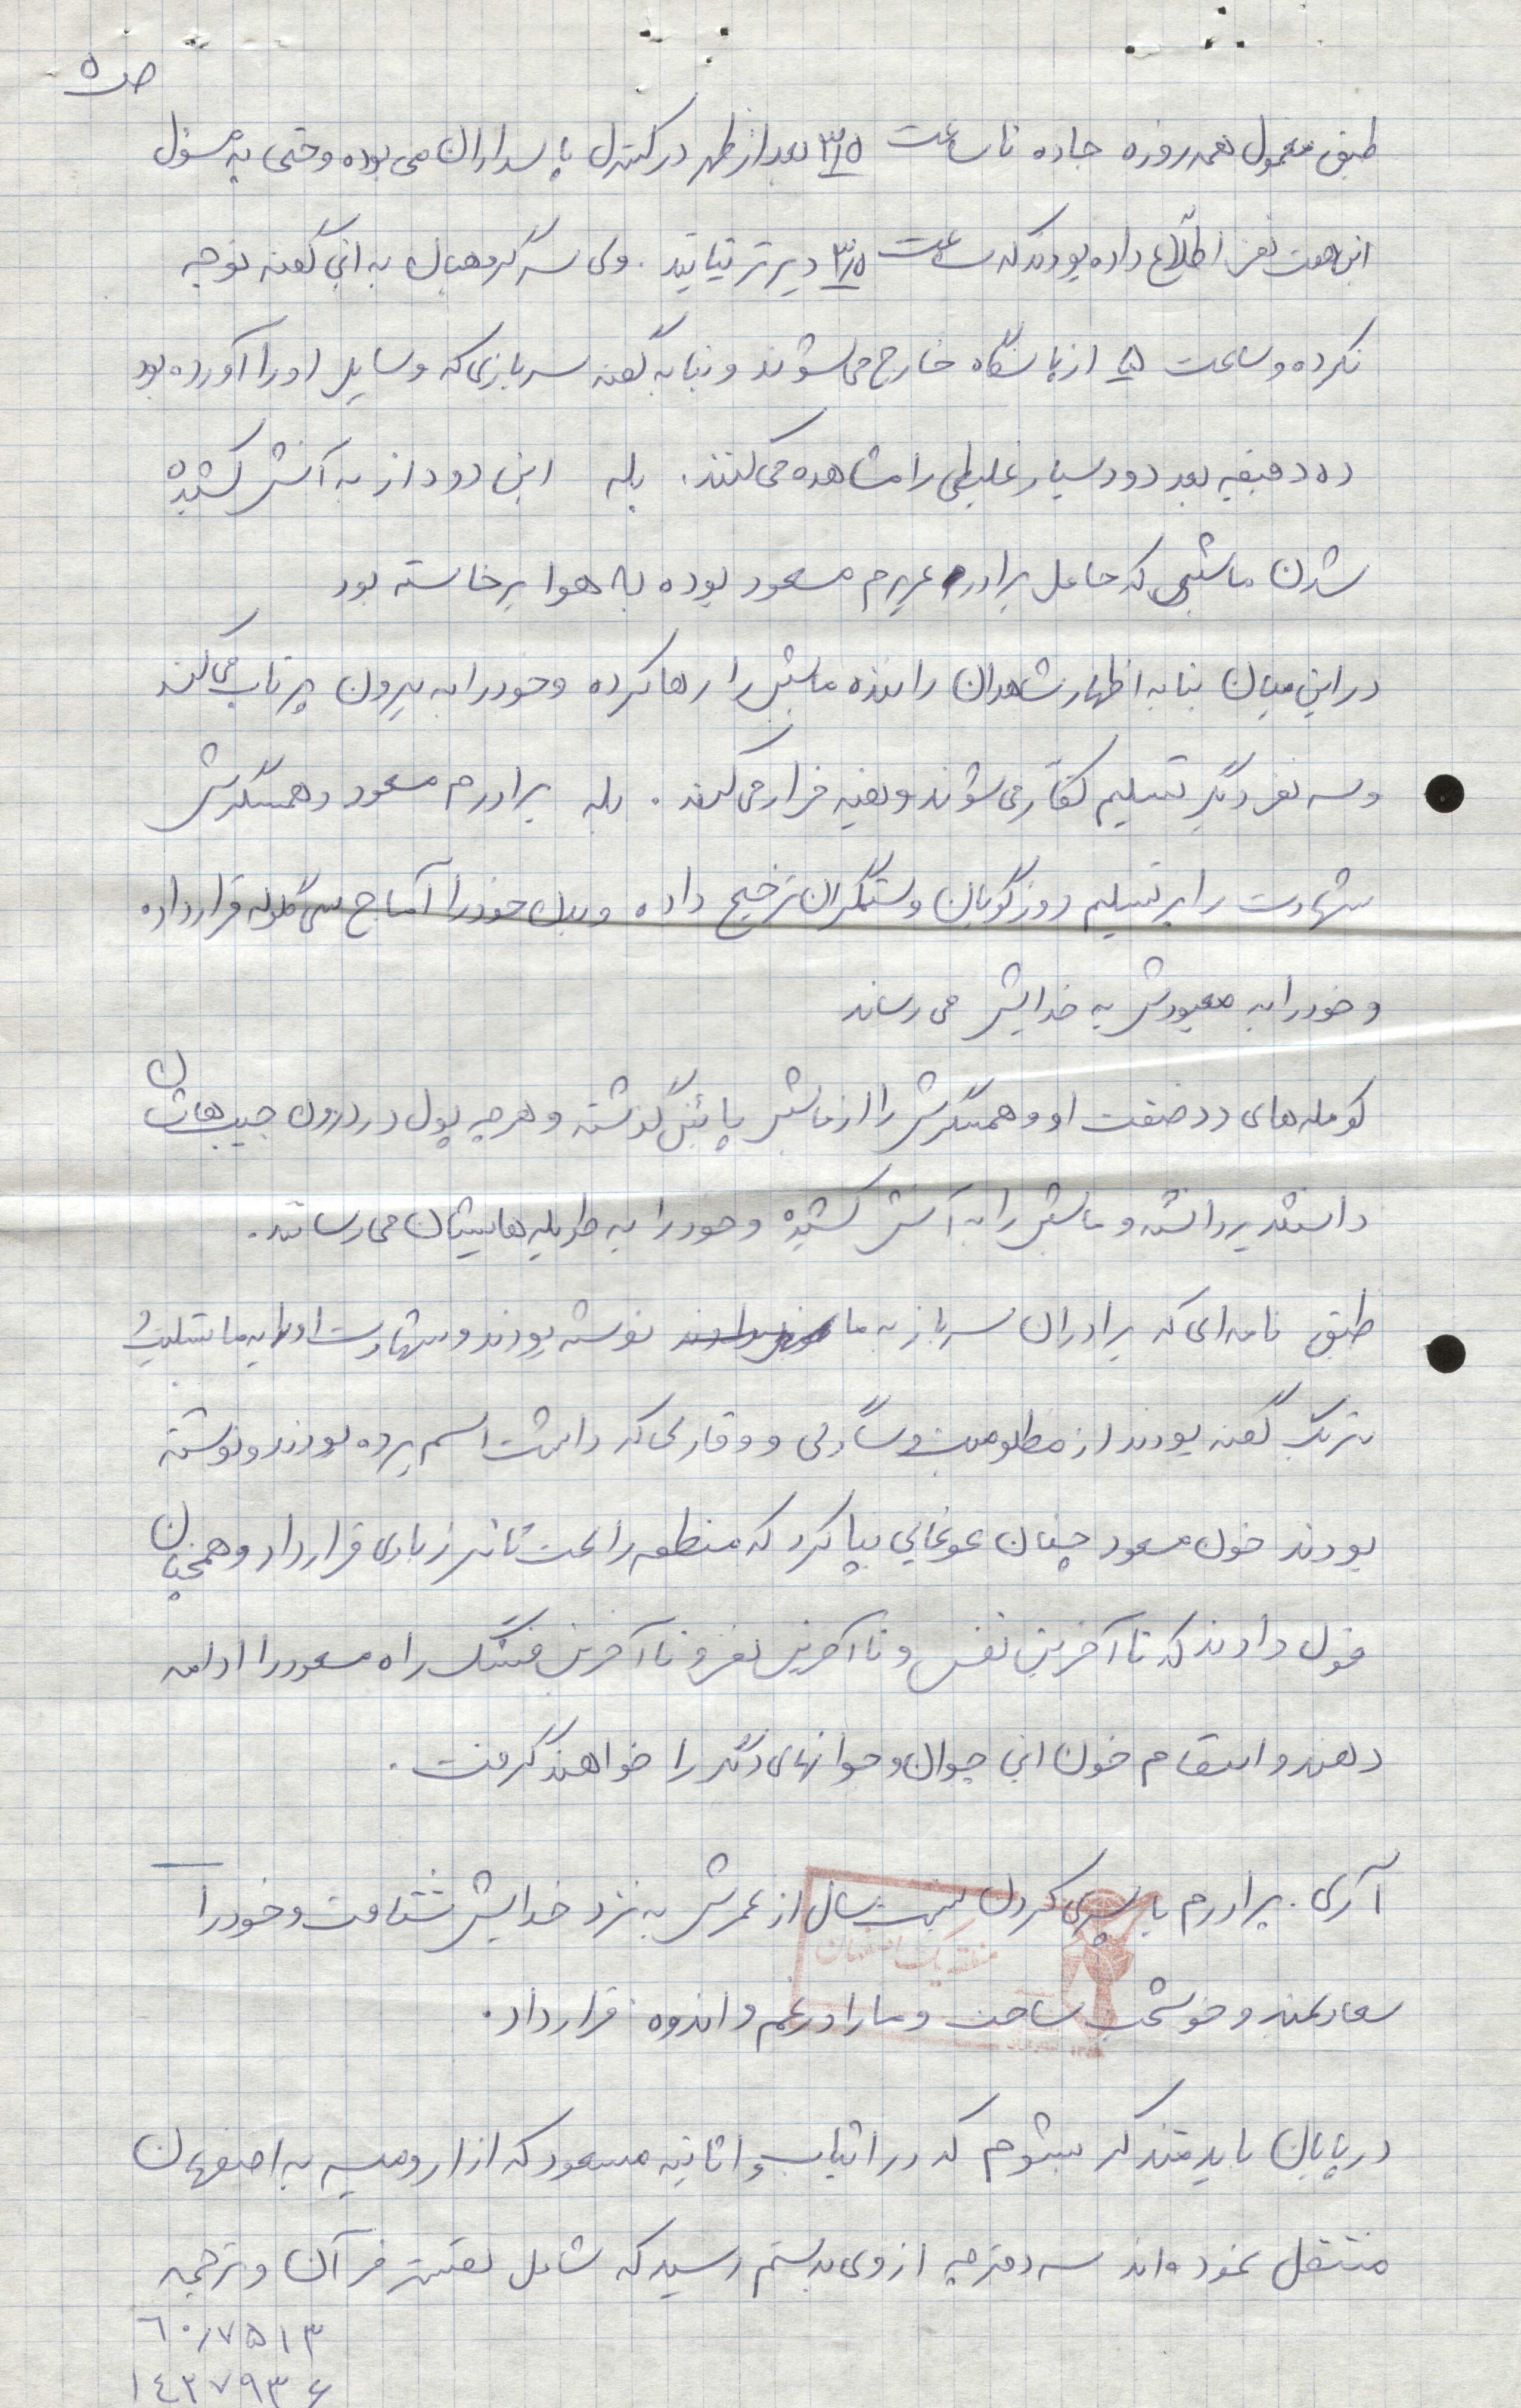 ص ۵
طبق معمول همه روزه جاده تا ساعت ۳/۵ بعد از ظهر در کنترل پاسداران می بوده و حتی به مسئول
این هفت نفر اطلاع داده بودند که ساعت ۳/۵ دیرتر نیایند. ولی سرگروهبان به این گفته توجه
نکرده و ساعت ۵ از پاسگاه خارج می شوند و بنا به گفته سربازی که وسایل او را آورده بود
ده دقیقه بعد دود بسیار غلیظی را مشاهده می کنند. بله این دود از به آتش کشیده
شدن ماشینی که حامل برادر عزیزم مسعود بوده به هوا برخاسته بود
در این میان بنا به اظهار شاهدان راننده ماشین را رها کرده و خود را به بیرون پرتاب می کند
و سه نفر دیگر تسلیم کفار می شوند و بقیه فرار می کنند. بله برادرم مسعود و همسنگرش
شهادت را بر تسلیم زورگویان و ستمگران ترجیح داده و بدن خود را آماج سی گلوله قرار داده
و خود را به معبودش به خدایش می رساند
کومله های دد صفت او و همسنگرش را از ماشین پائین گذشته و هر چه پول در درون جیب هاشان
داشتند برداشته و ماشین را به آتش کشیده و خود را به طویله هایشان می رسانند.
طبق نامه ای که برادران سرباز به ما نوشته بودند و شهادت او را به ما تسلیت و
تبریک گفته بودند از مظلومیت و سادگی و وقاری که داشت اسم برده بودند و نوشته
بودند خون مسعود چنان غوغایی بپا کرد که منطقه را تحت تاثیر زیادی قرار داد و همچنان
قول دادند که تا آخرین نفس و تا آخرین نفر و تا آخرین فشنگ راه مسعود را ادامه
دهند و انتقام خون این جوان و جوانهای دیگر را خواهند گرفت.
آری. برادرم با سپری کردن بیست سال از عمرش به نزد خدایش شتافت و خود را
سعادتمند و خوشبخت ساخت و ما را در غم و اندوه قرار داد.
منطقه یک اصفهان
در پایان باید متذکر بشوم که در اسباب و اثاثیه مسعود که از ارومیه به اصفهان
منتقل نموده اند سه دفترچه از وی بدستم رسید که شامل تفسیر قرآن و ترجمه
٦٠/٧٥١٣
١٤٣٧٩٣٦